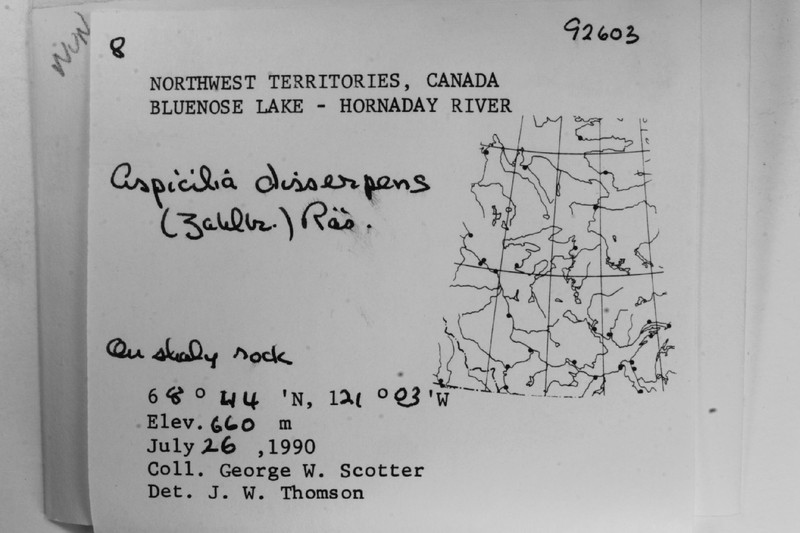 WIN
8
92603
NORTHWEST TERRITORIES, CANADA
BLUENOSE LAKE - HORNADAY RIVER
Aspicilia disserpens
(Zahlbr.) Räs.
On shaly rock
68° 44 'N, 121 ° 03'W
Elev. 660 m
July 26 ,1990
Coll. George W. Scotter
Det. J. W. Thomson